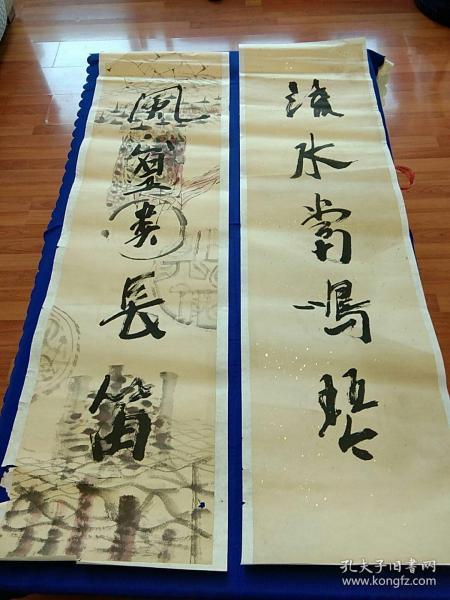 流水當鳴琴
風篁类長笛
孔夫子旧书网
www.kongfz.com